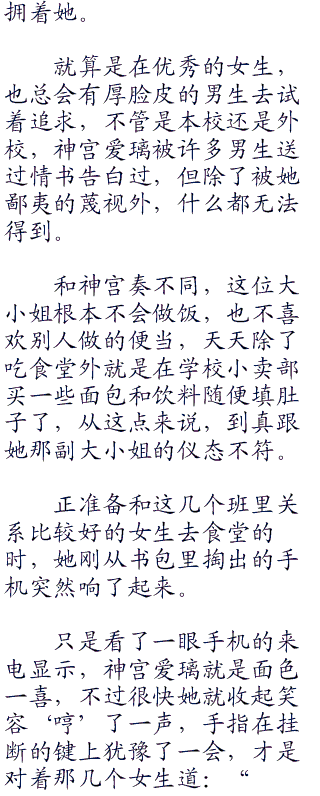 拥着她。
就算是在优秀的女生，
也总会有厚脸皮的男生去试
着追求，不管是本校还是外
校，神宫爱璃被许多男生送
过情书告白过，但除了被她
鄙夷的蔑视外，什么都无法
得到。
和神宫奏不同，这位大
小姐根本不会做饭，也不喜
欢别人做的便当，天天除了
吃食堂外就是在学校小卖部
买一些面包和饮料随便填肚
子了，从这点来说，到真跟
她那副大小姐的仪态不符。
正准备和这几个班里关
系比较好的女生去食堂的
时，她刚从书包里掏出的手
机突然响了起来。
只是看了一眼手机的来
电显示，神宫爱璃就是面色
一喜，不过很快她就收起笑
容‘哼’了一声，手指在挂
断的键上犹豫了一会，才是
对着那几个女生道：“